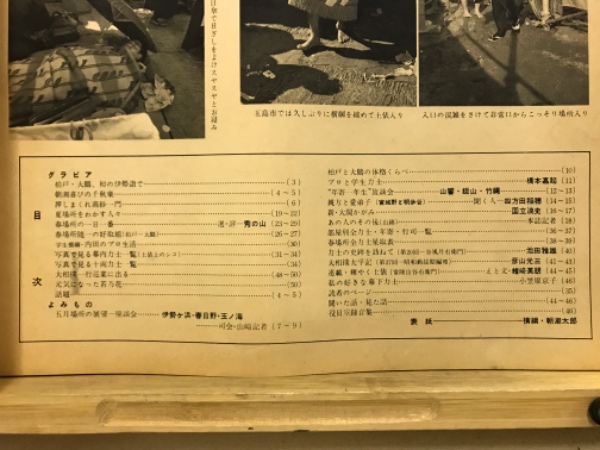 日傘で日ざしをよけスヤスヤとお寝み
五島市では久しぶりに横綱を締めて土俵入り
入口の混雑をさけて非常口からこっそり場所入り
目次
グラビア
柏戸・大鵬、初の伊勢詣で (3)
朝潮喜びの千秋楽 (4〜5)
押しまくれ高砂一門 (6)
夏場所をわかす人々 (19〜22)
春場所の一日一番 選・評＝秀の山 (23〜29)
春場所随一の好取組(柏戸―大鵬) (26〜27)
学生横綱・内田のプロ生活 (30)
写真で見る幕内力士一覧(土俵上のシコ) (31〜34)
写真で見る十両力士一覧 (34)
大相撲一行近畿に出る (48〜50)
元気になった若乃花 (50)
話題 (4〜5)
よみもの
五月場所の展望―座談会 伊勢ヶ浜・春日野・玉ノ海
司会・山崎記者 (7〜9)
柏戸と大鵬の体格くらべ (10)
プロと学生力士 橋本嘉起 (11)
"年寄一年生"放談会 山響・錣山・竹縄 (12〜13)
親方と愛弟子(宮城野と明歩谷) 聞く人＝四方田稲穂 (14〜15)
新・大関かがみ 国立浪史 (16〜17)
あの人のその後(山錦) 本誌記者 (28)
部屋別全力士・年寄・行司一覧 (36〜37)
春場所全力士星取表 (38〜39)
力士の史跡を訪ねて 池田雅雄 (40)
大相撲太平記 彦山光三 (41〜43)
連載・輝やく土俵 えと文・棚崎英朋 (44〜45)
私の好きな幕下力士 小里原京子 (46)
読者のページ (35)
聞いた話・見た話 (44〜46)
役員室録音集 (46)
表紙 横綱・朝潮太郎